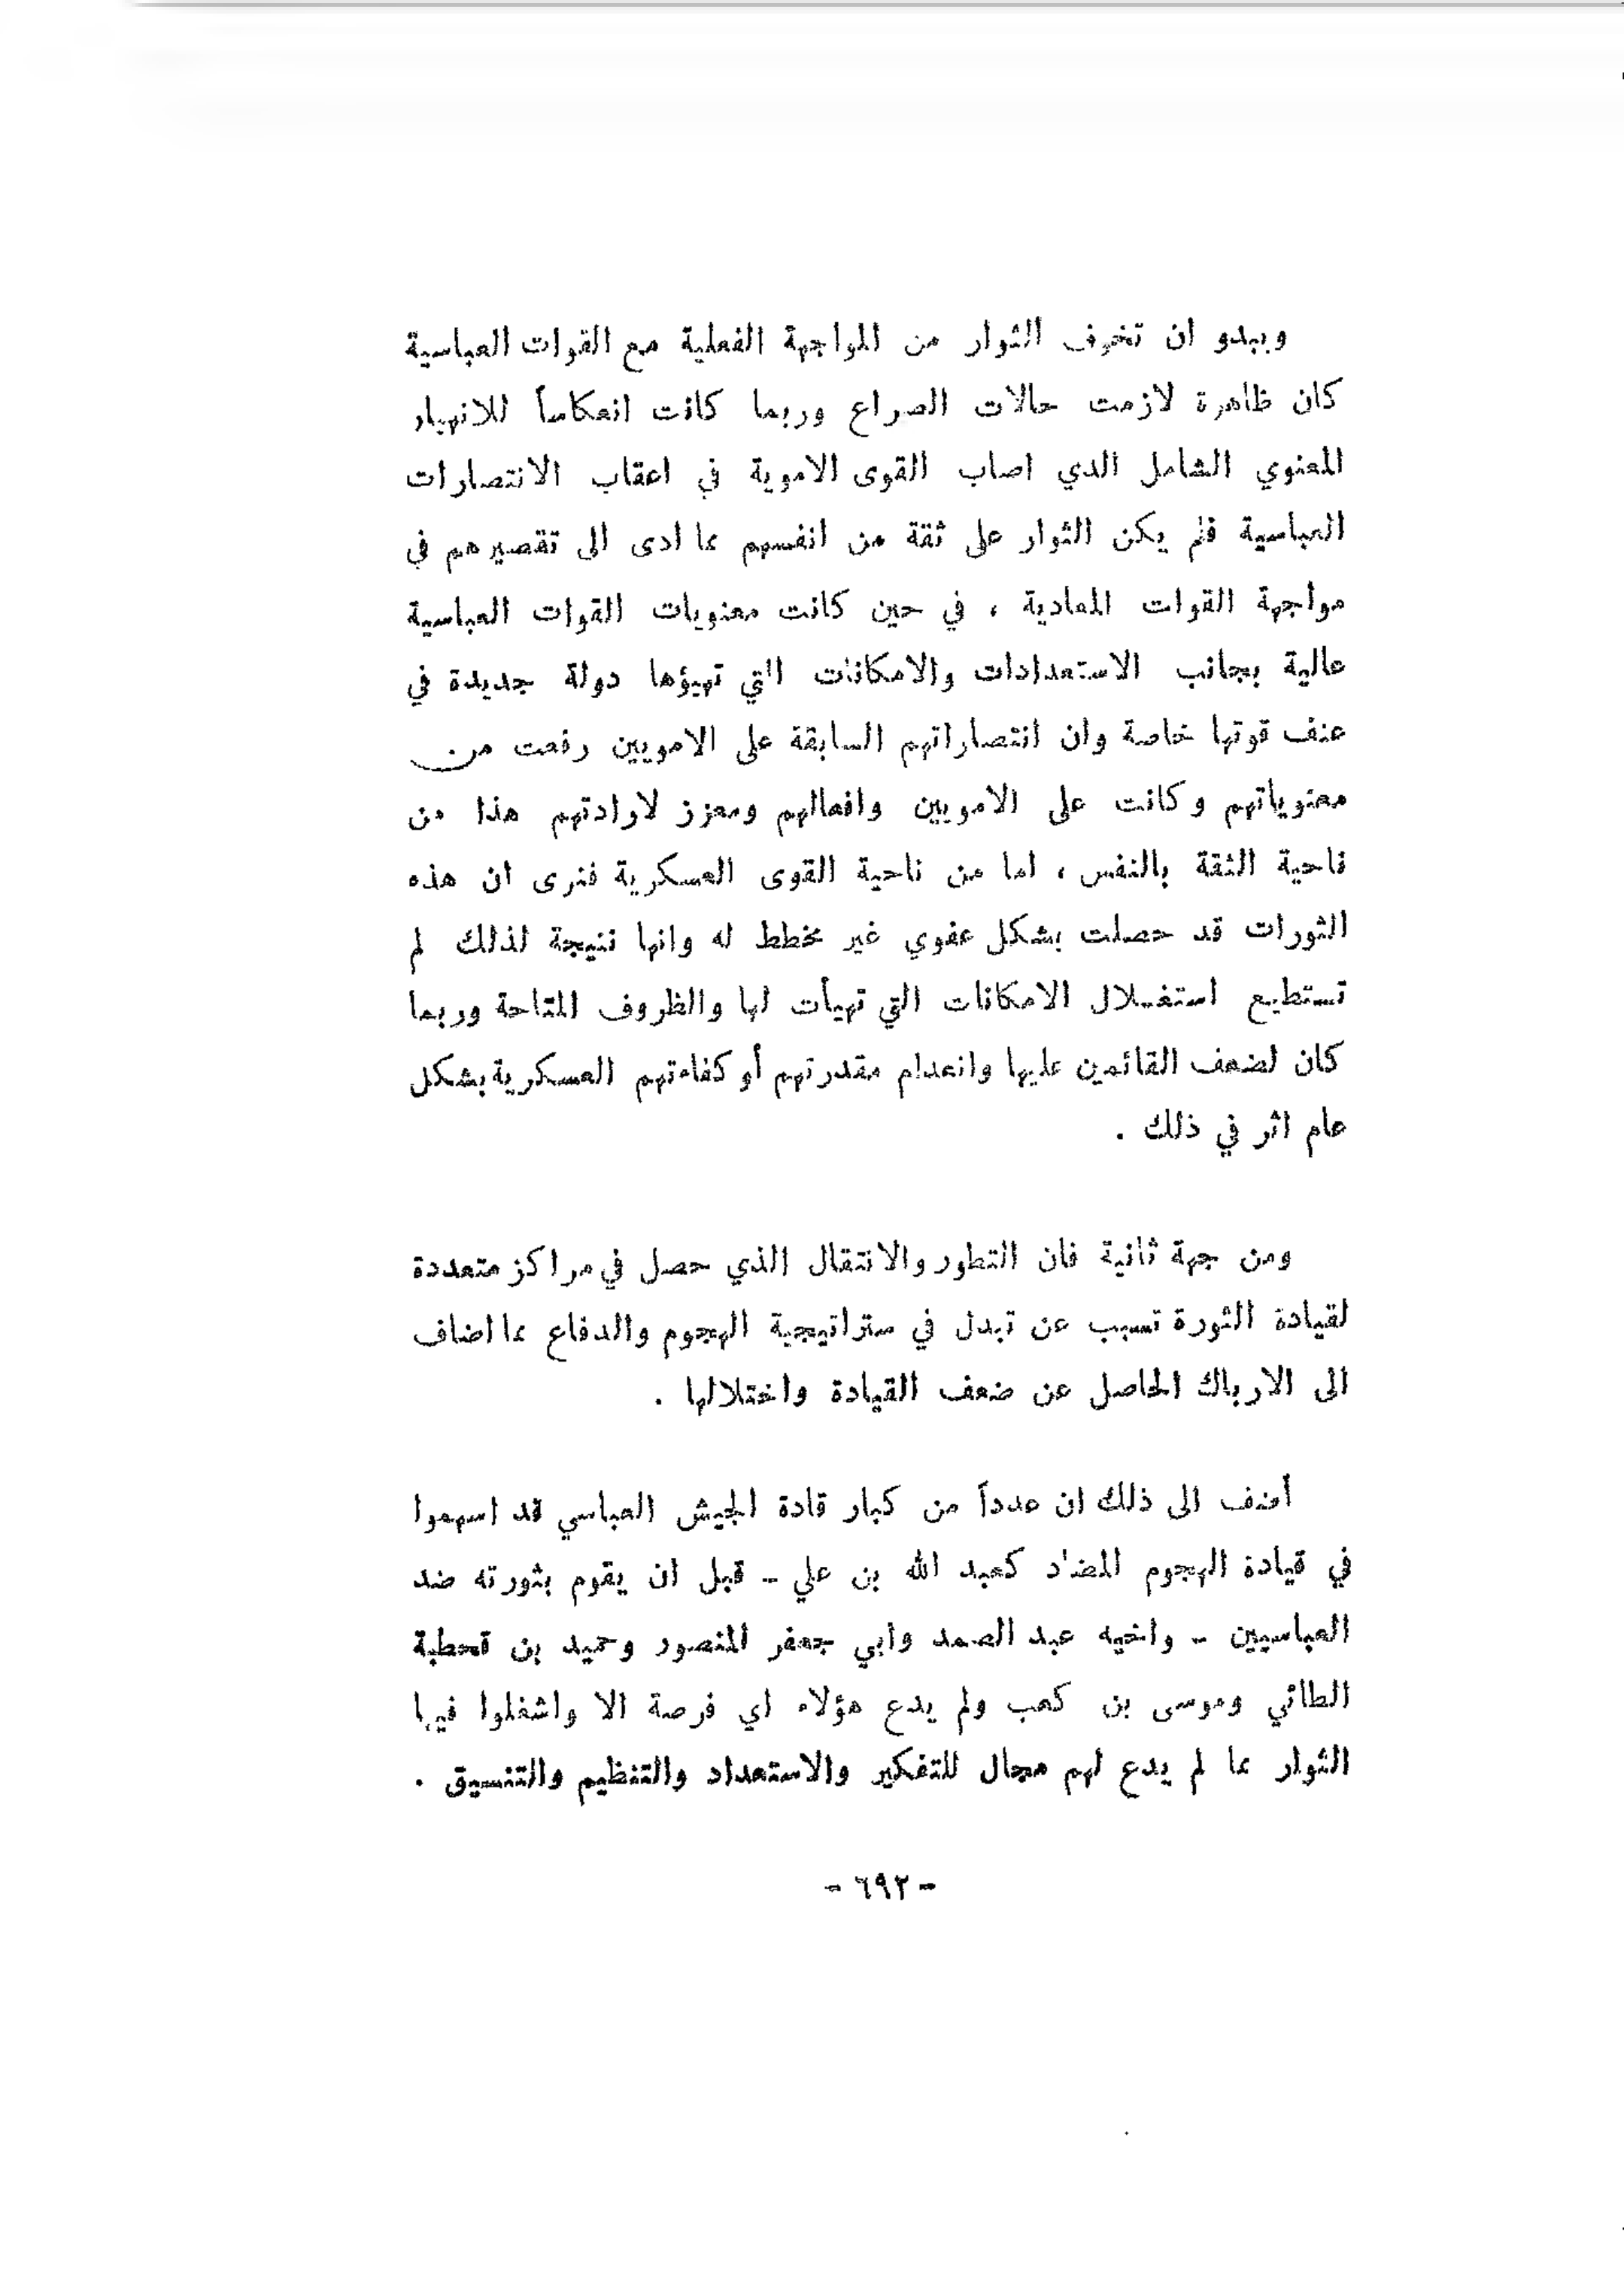 ويبدو ان تخوف الثوار من المواجهة الفعلية مع القوات العباسية
كان ظاهرة لازمت حالات الصراع وربما كانت انعكاساً للانهيار
المعنوي الشامل الدي اصاب القوى الاموية في اعقاب الانتصارات
العباسية فلم يكن الثوار على ثقة من انفسهم مما ادى الى تقصيرهم في
مواجهة القوات المعادية ، في حين كانت معنويات القوات العباسية
عالية بجانب الاستعدادات والامكانات التي تهيؤها دولة جديدة في
عنف قوتها خاصة وان انتصاراتهم السابقة على الامويين رفعت من
معنوياتهم وكانت على الامويين وافعالهم ومعزز لارادتهم هذا من
ناحية الثقة بالنفس ، اما من ناحية القوى العسكرية فنرى ان هذه
الثورات قد حصلت بشكل عفوي غير مخطط له وانها نتيجة لذلك لم
تستطيع استغلال الامكانات التي تهيأت لها والظروف المتاحة وربما
كان لضعف القائمين عليها وانعدام مقدرتهم أو كفاءتهم العسكرية بشكل
عام اثر في ذلك .
ومن جهة ثانية فان التطور والانتقال الذي حصل في مراكز متعددة
لقيادة الثورة تسبب عن تبدل في ستراتيجية الهجوم والدفاع مما اضاف
الى الارباك الحاصل عن ضعف القيادة واختلالها .
أضف الى ذلك ان عدداً من كبار قادة الجيش العباسي قد اسهموا
في قيادة الهجوم المضاد كعبد الله بن علي - قبل ان يقوم بثورته ضد
العباسيين - واخيه عبد الصمد وابي جعفر المنصور وحميد بن قحطبة
الطائي وموسى بن كعب ولم يدع هؤلاء اي فرصة الا واشغلوا فيها
الثوار مما لم يدع لهم مجال للتفكير والاستعداد والتنظيم والتنسيق .
- ٦٩٢ -